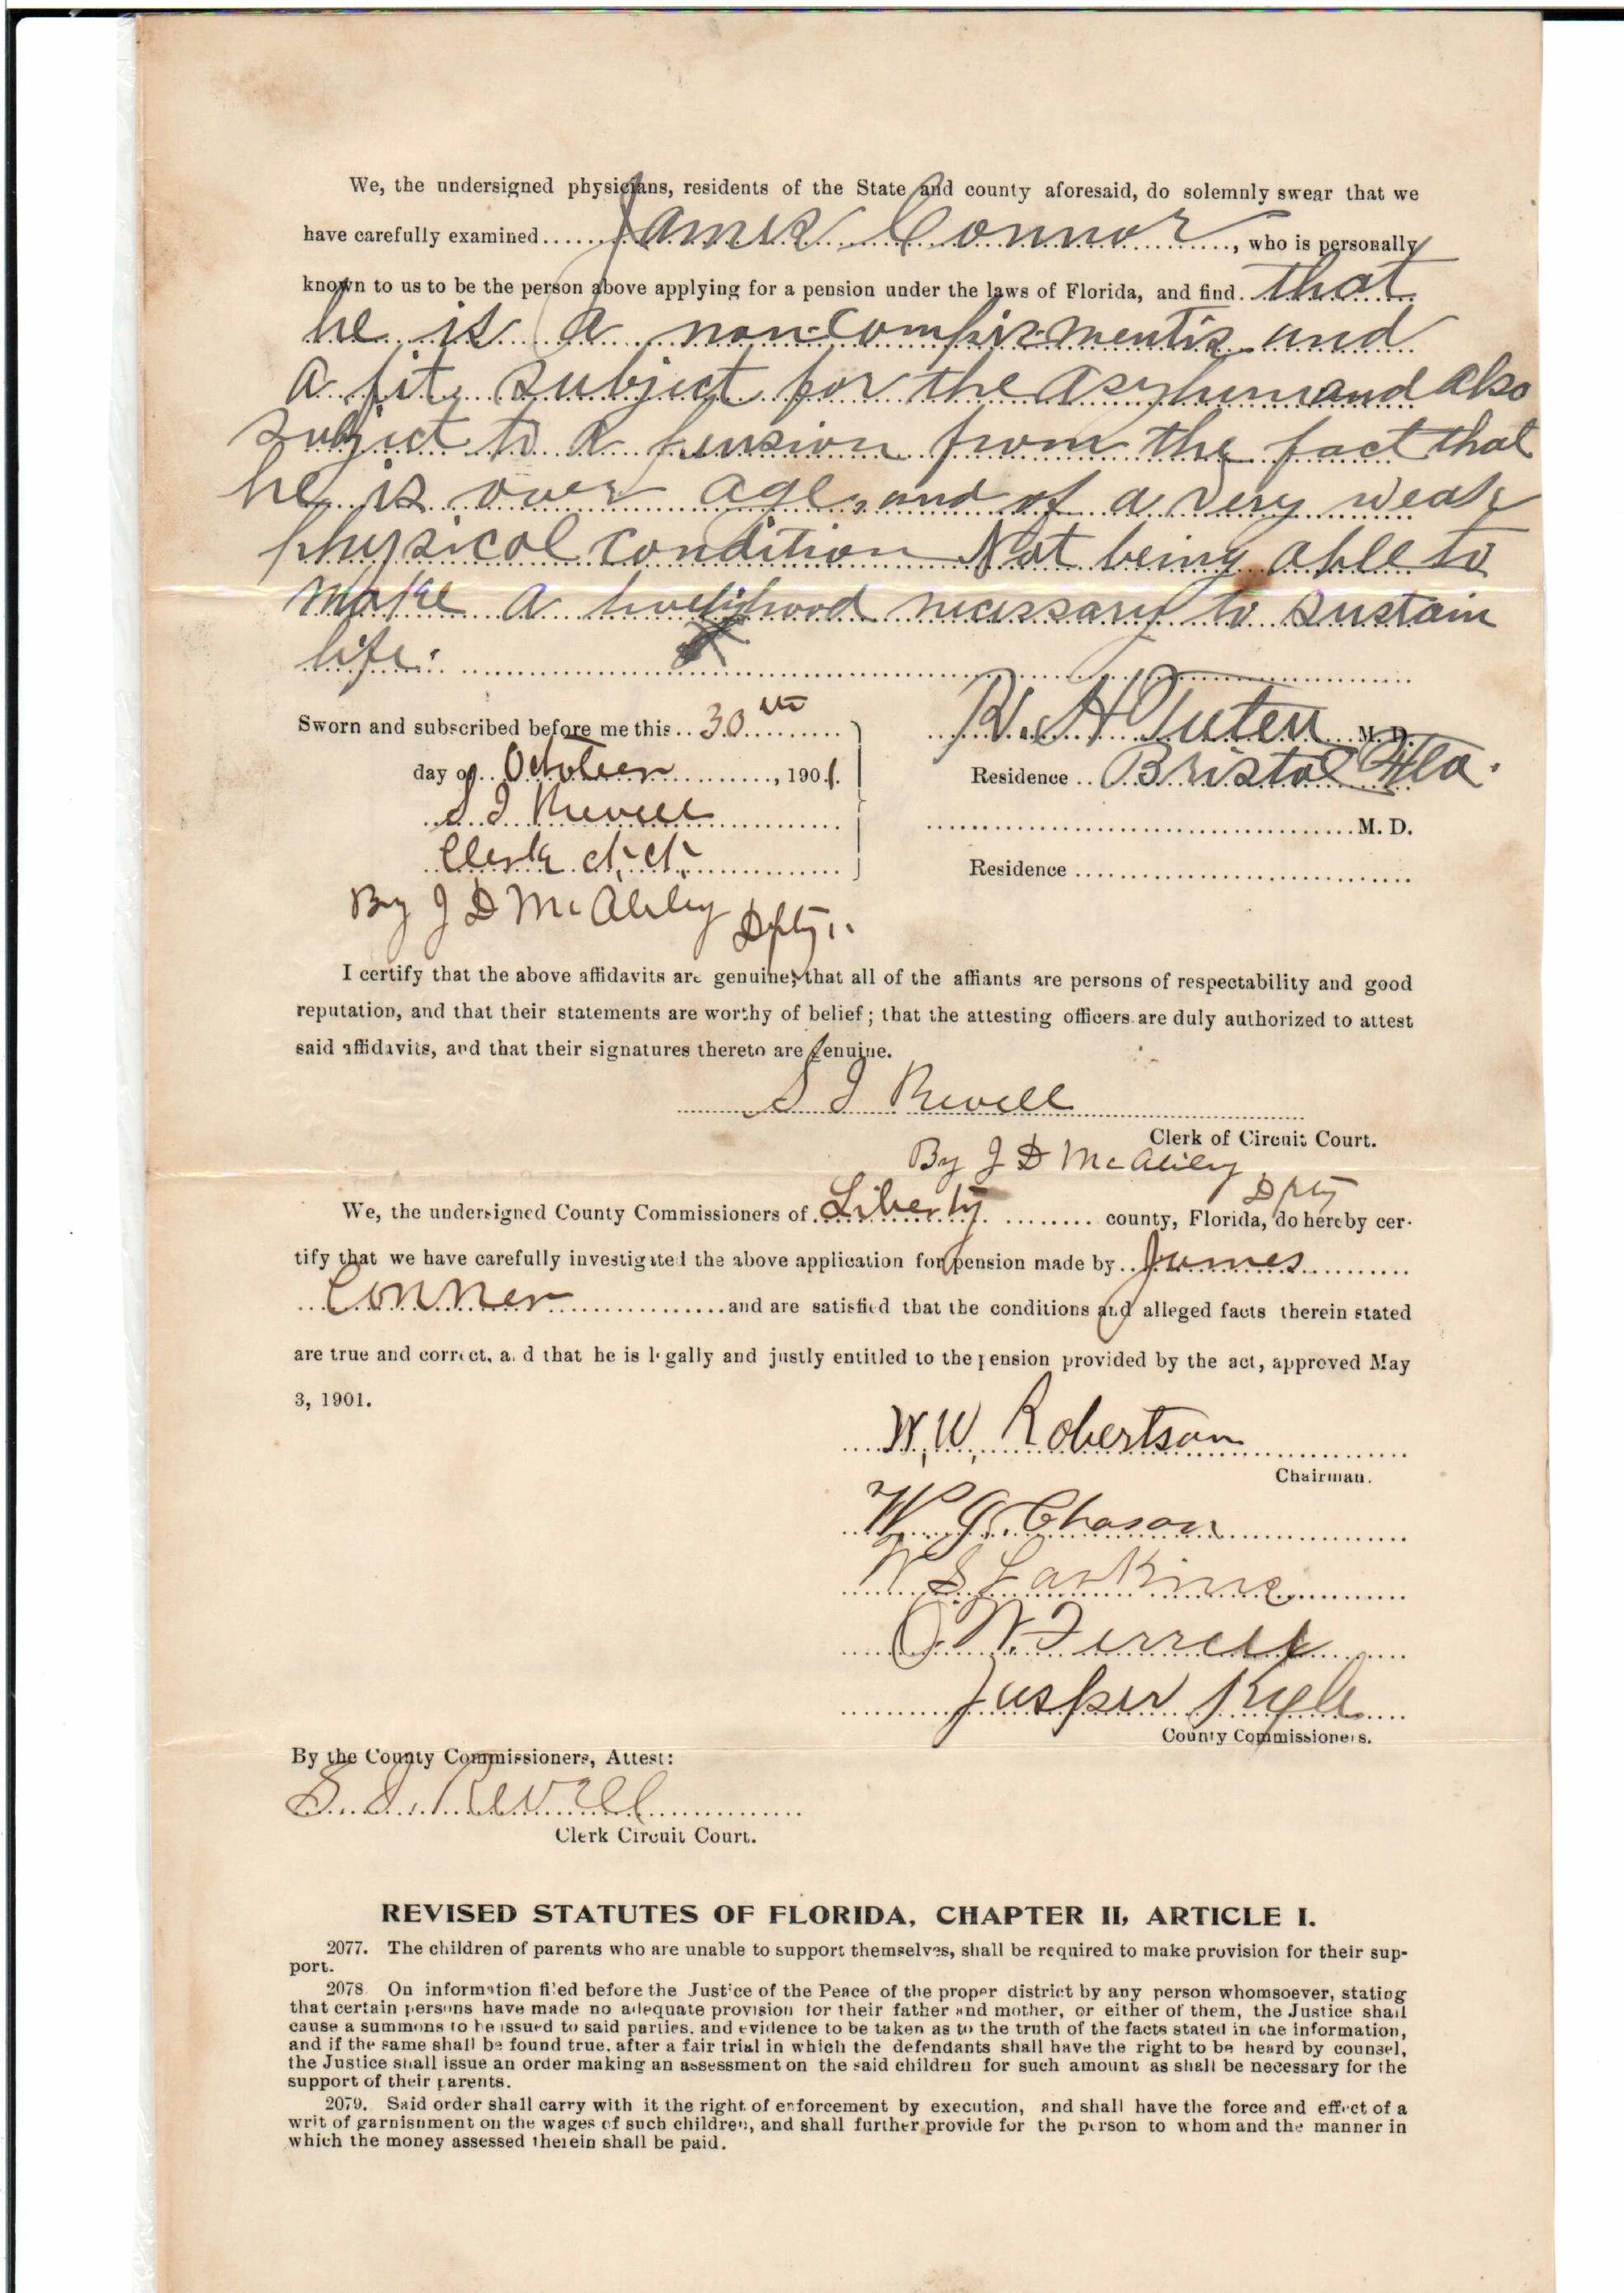 We, the undersigned physicians, residents of the State and county aforesaid, do solemnly swear that we
have carefully examined James Connor, who is personally
known to us to be the person above applying for a pension under the laws of Florida, and find that
he is a non-compis-mentis and
a fit subject for the asylum and also
subject to a pension from the fact that
he is over age, and of a very weak
physical condition Not being able to
make a livelihood necessary to sustain
life.
Sworn and subscribed before me this 30th
day of October, 1901.
S J Revell
Clerk Ct. Ct.
By J D McAliley Dpty.
H Tuten M. D.
Residence Bristol Fla.
M. D.
Residence
I certify that the above affidavits are genuine; that all of the affiants are persons of respectability and good
reputation, and that their statements are worthy of belief; that the attesting officers are duly authorized to attest
said affidavits, and that their signatures thereto are genuine.
S J Revell
Clerk of Circuit Court.
By J D McAliley Dpty
We, the undersigned County Commissioners of Liberty county, Florida, do hereby cer-
tify that we have carefully investigated the above application for pension made by James
Conner and are satisfied that the conditions and alleged facts therein stated
are true and correct, and that he is legally and justly entitled to the pension provided by the act, approved May
3, 1901.
W. W. Robertson
Chairman.
W. G. Chason
S Larkins
O. W. Ferrell
Jasper Kyle
County Commissioners.
By the County Commissioners, Attest:
S. J. Revell
Clerk Circuit Court.
REVISED STATUTES OF FLORIDA, CHAPTER II, ARTICLE I.
2077. The children of parents who are unable to support themselves, shall be required to make provision for their sup-
port.
2078. On information filed before the Justice of the Peace of the proper district by any person whomsoever, stating
that certain persons have made no adequate provision for their father and mother, or either of them, the Justice shall
cause a summons to be issued to said parties, and evidence to be taken as to the truth of the facts stated in the information,
and if the same shall be found true, after a fair trial in which the defendants shall have the right to be heard by counsel,
the Justice shall issue an order making an assessment on the said children for such amount as shall be necessary for the
support of their parents.
2079. Said order shall carry with it the right of enforcement by execution, and shall have the force and effect of a
writ of garnishment on the wages of such children, and shall further provide for the person to whom and the manner in
which the money assessed therein shall be paid.